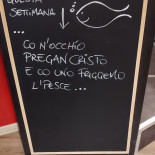 QUESTA
SETTIMANA
... CO N'OCCHIO
PREGAN CRISTO
E CO UNO FRIGGEMO
L'PESCE ...